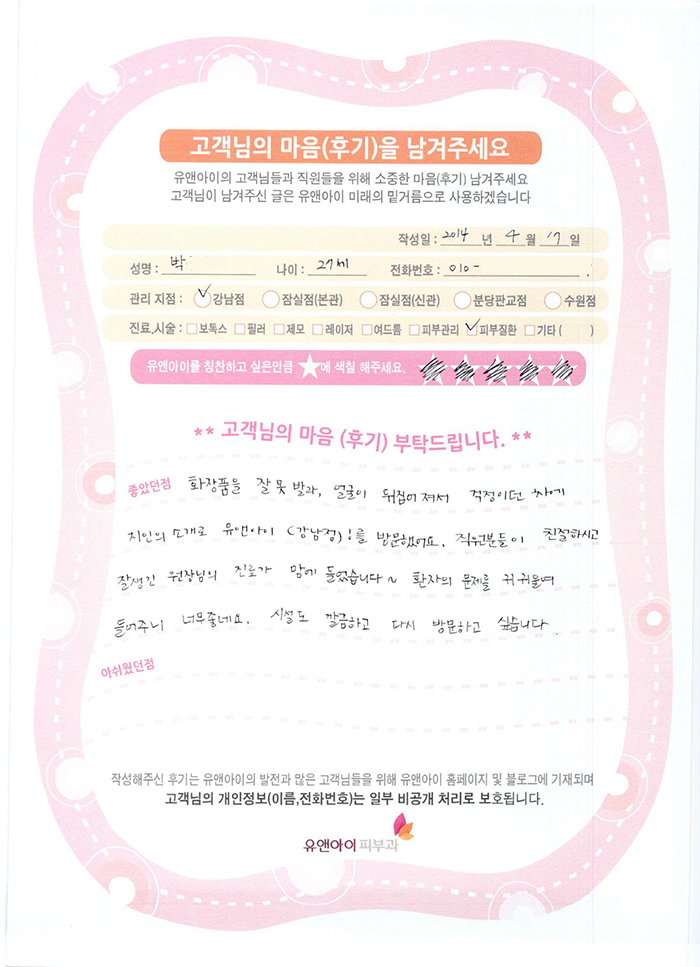 고객님의 마음(후기)을 남겨주세요
유앤아이의 고객님들과 직원들을 위해 소중한 마음(후기) 남겨주세요
고객님이 남겨주신 글은 유앤아이 미래의 밑거름으로 사용하겠습니다
작성일 : 2014 년 4 월 17 일
성명 : 박 나이 : 27세 전화번호 : 010-
관리 지점 : 강남점 잠실점(본관) 잠실점(신관) 분당판교점 수원점
진료,시술 : 보톡스 필러 제모 레이저 여드름 피부관리 피부질환 기타 ( )
유앤아이를 칭찬하고 싶은만큼 ★에 색칠 해주세요.
** 고객님의 마음 (후기) 부탁드립니다. **
좋았던점 화장품을 잘못 발라, 얼굴이 뒤집어져서 걱정이던 차에
지인의 소개로 유앤아이 (강남점)!를 방문했어요. 직원분들이 친절하시고
잘생긴 원장님의 진료가 맘에 들었습니다~ 환자의 문제를 귀 귀울여
들어주니 너무좋네요. 시설도 깔끔하고 다시 방문하고 싶습니다
아쉬웠던점
작성해주신 후기는 유앤아이의 발전과 많은 고객님들을 위해 유앤아이 홈페이지 및 블로그에 기재되며
고객님의 개인정보(이름,전화번호)는 일부 비공개 처리로 보호됩니다.
유앤아이피부과